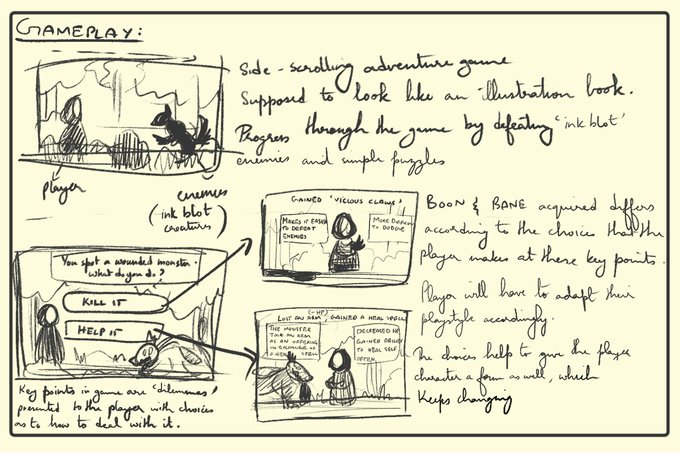 GAMEPLAY:
Side-scrolling adventure game
Supposed to look like an illustration book.
Progress through the game by defeating 'ink blot'
enemies and simple puzzles
player
enemies
(ink blot
creatures)
You spot a wounded monster
what do you do?
KILL IT
HELP IT
Key points in game are 'dilemmas'
presented to the player with choices
as to how to deal with it.
GAINED 'VICIOUS CLAWS'
MAKES IT EASY
TO DEFEAT
ENEMIES
MORE DIFFICULT
TO DODGE
(-HP)
LOST AN ARM, GAINED A HEAL SPELL
THE MONSTER
TOOK AN ARM
AS AN OFFERING
IN EXCHANGE OF
A HEAL SPELL
DECREASED HP
GAINED ABILITY
TO HEAL SELF
OFTEN
BOON & BANE acquired differs
according to the choice that the
player makes at these key points.
Player will have to adapt their
playstyle accordingly.
The choices help to give the player
character a form as well, which
keeps changing